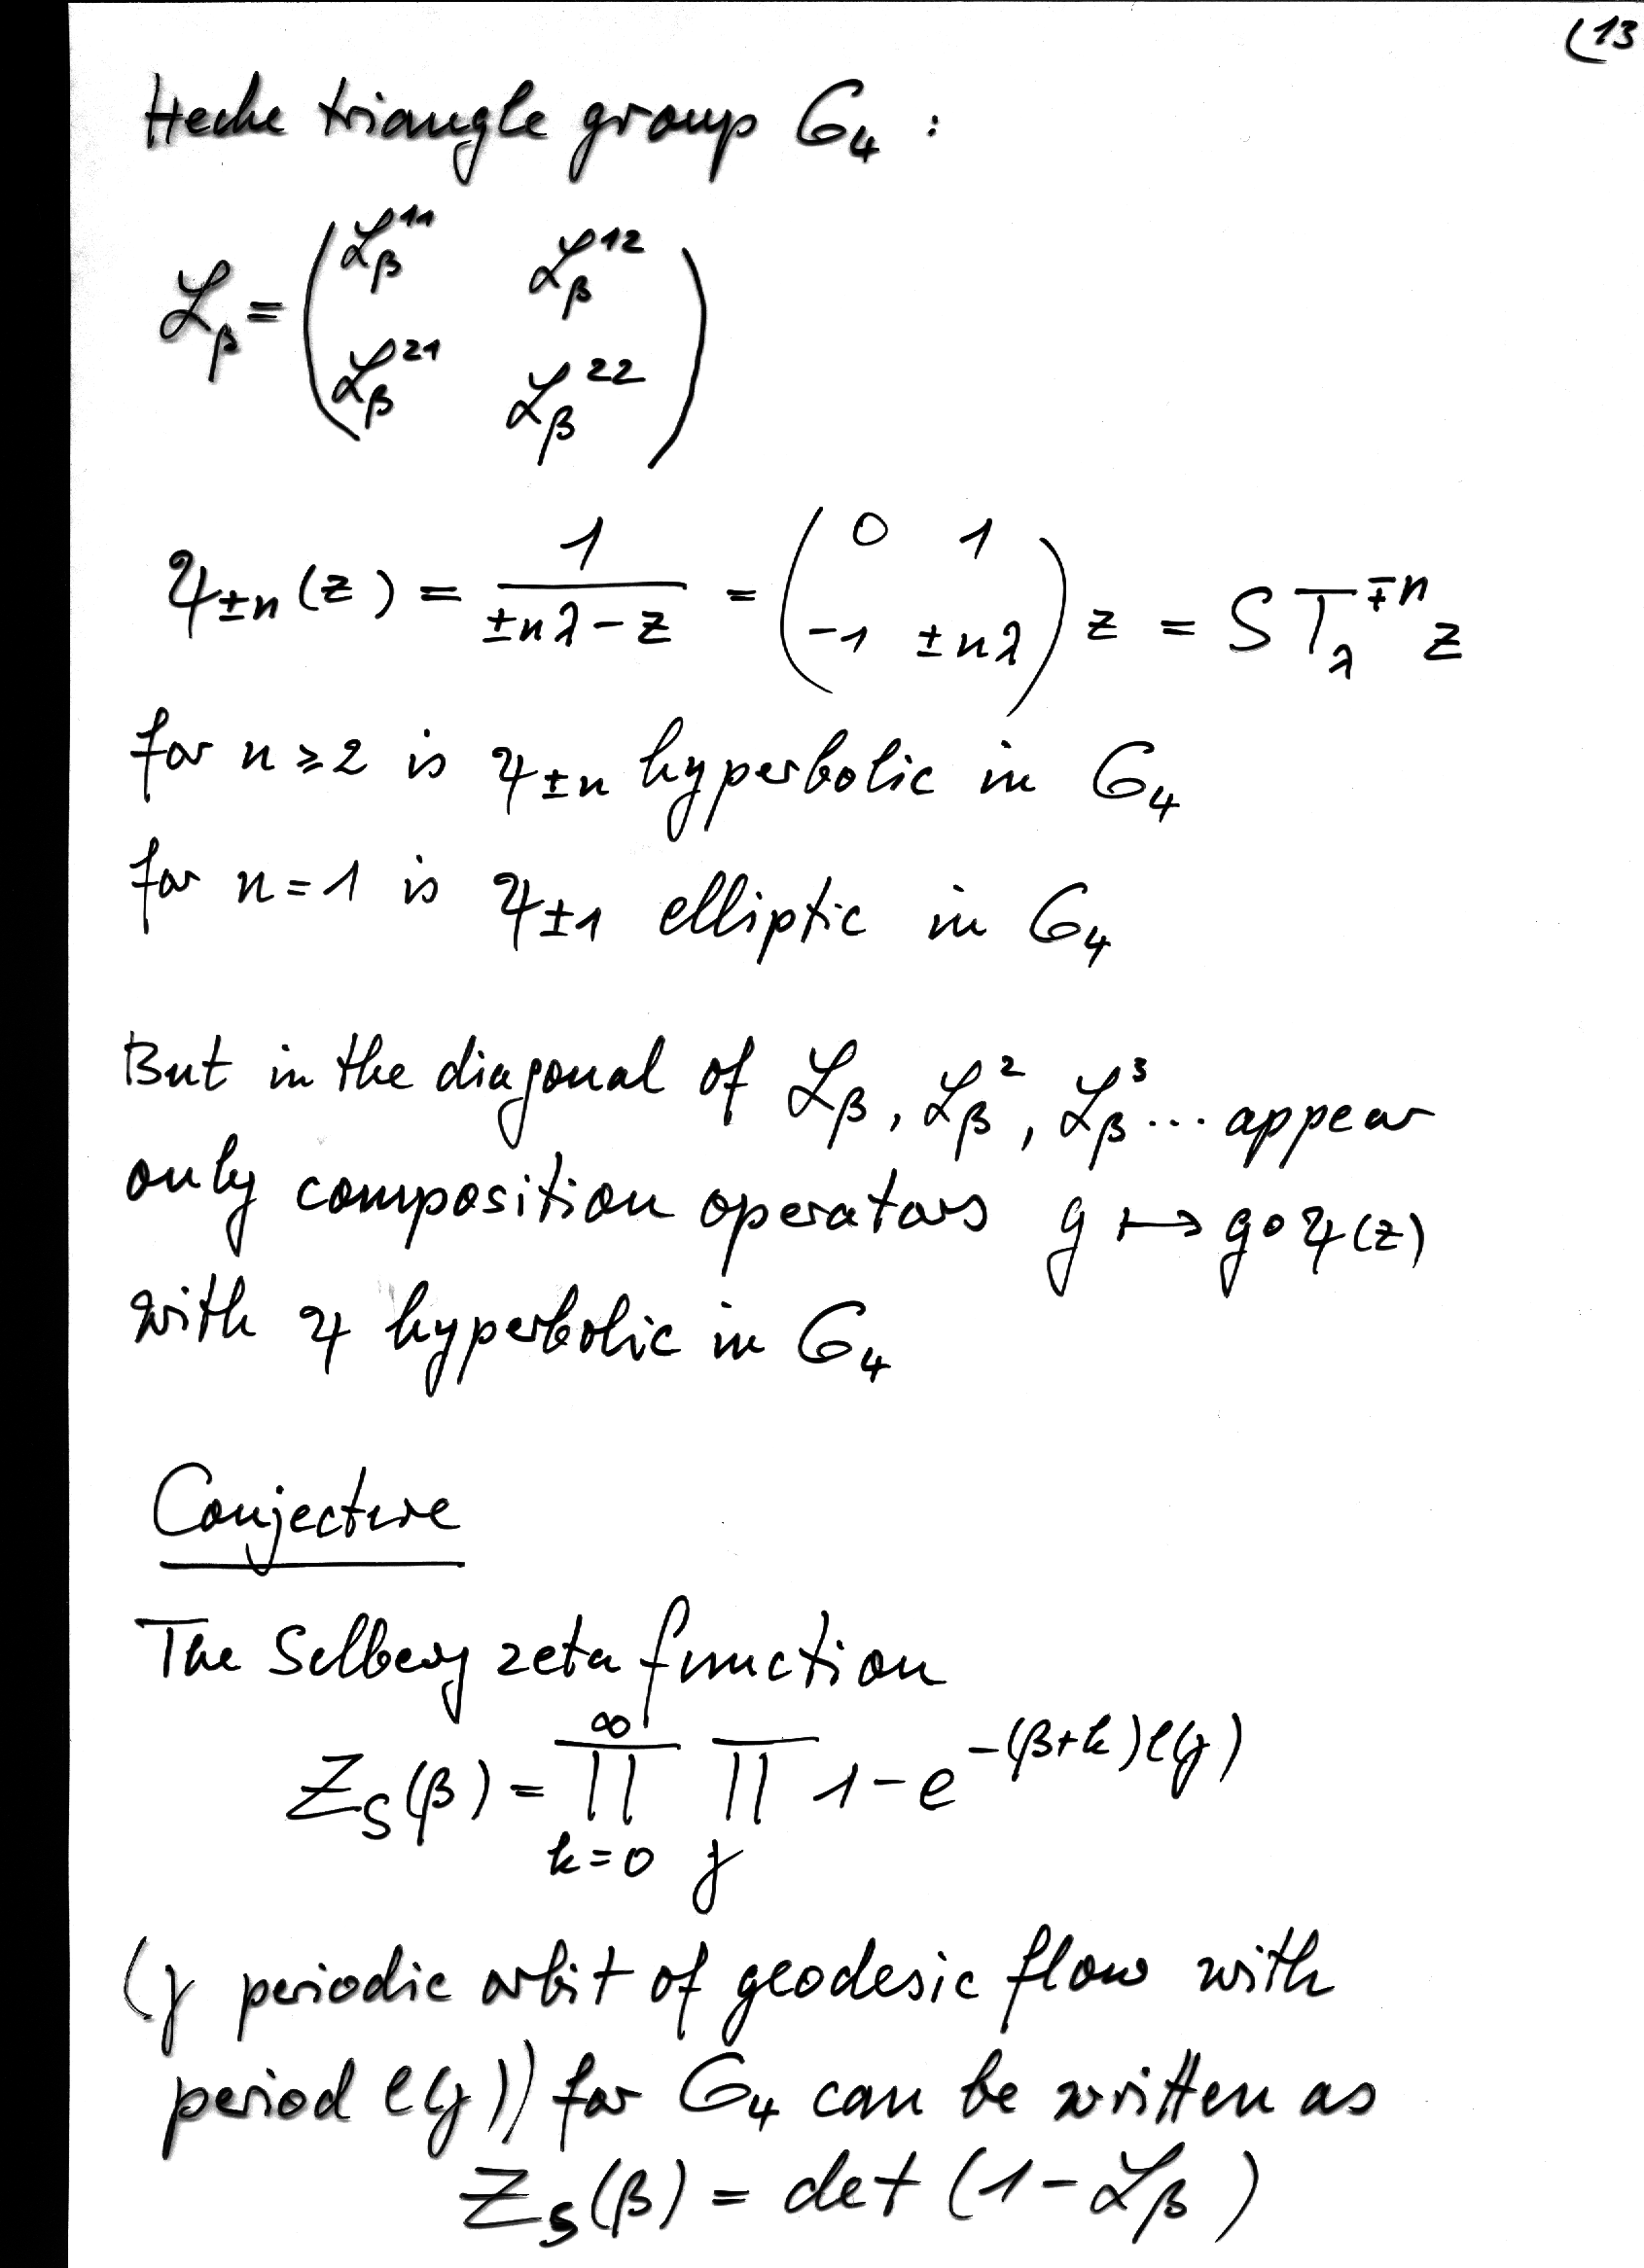 (13
Hecke triangle group G₄ :
ℒ_β = ( ℒ_β^11 ℒ_β^12
ℒ_β^21 ℒ_β^22 )
ψ_±n (z) = 1 / (±nλ − z) = ( 0 1 ; −1 ±nλ ) z = S T_λ^∓n z
for n ≥ 2 is ψ_±n hyperbolic in G₄
for n = 1 is ψ_±1 elliptic in G₄
But in the diagonal of ℒ_β, ℒ_β^2, ℒ_β^3 ... appear
only composition operators g ↦ g∘ψ(z)
with ψ hyperbolic in G₄
Conjecture
The Selberg zeta function
Z_S(β) = ∏_{k=0}^∞ ∏_γ 1 − e^{−(β+k)ℓ(γ)}
(γ periodic orbit of geodesic flow with
period ℓ(γ)) for G₄ can be written as
Z_S(β) = det (1 − ℒ_β)